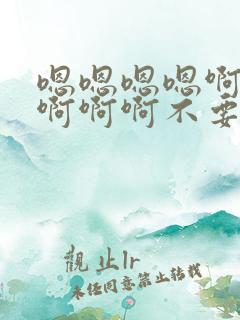 嗯嗯嗯嗯啊
啊啊啊不要
觀止lr
未经同意禁止转载